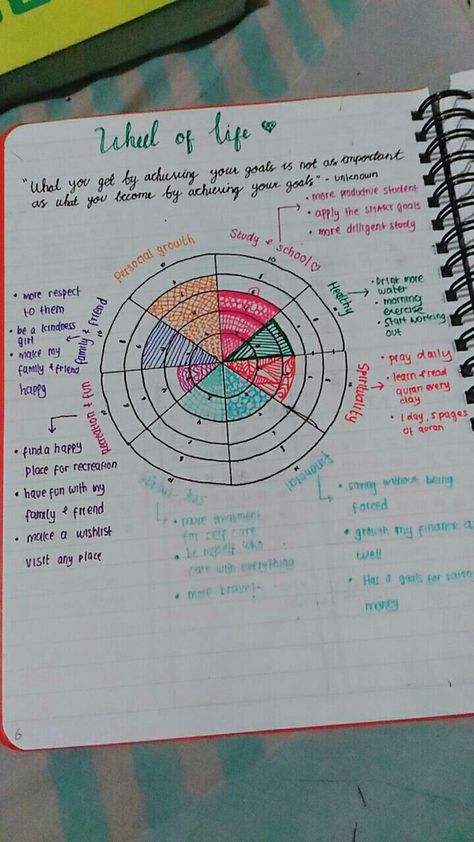 Wheel of life
"What you get by achieving your goals is not as important
as what you become by achieving your goals" - unknown
Personal growth
Study & school
• more productive student
• apply the SMART goals
• more dilligent study
Healthy
• Drink more
water
• morning
exercise
• Start working
out
Spirituality
• pray daily
• learn & read
quran every
day
• 1 day, 5 pages
of quran
Financial
• saving without being
forced
• growth my finance as
well
• Has a goals for
money
self-image
• more treatment
for self care
• be myself who
care with everything
• more brave!
Recreation & fun
• find a happy
place for recreation
• have fun with my
family & friend
• make a wishlist
visit any place
family & friend
• more respect
to them
• be a kindness
girl
• make my
family & friend
happy
10
6